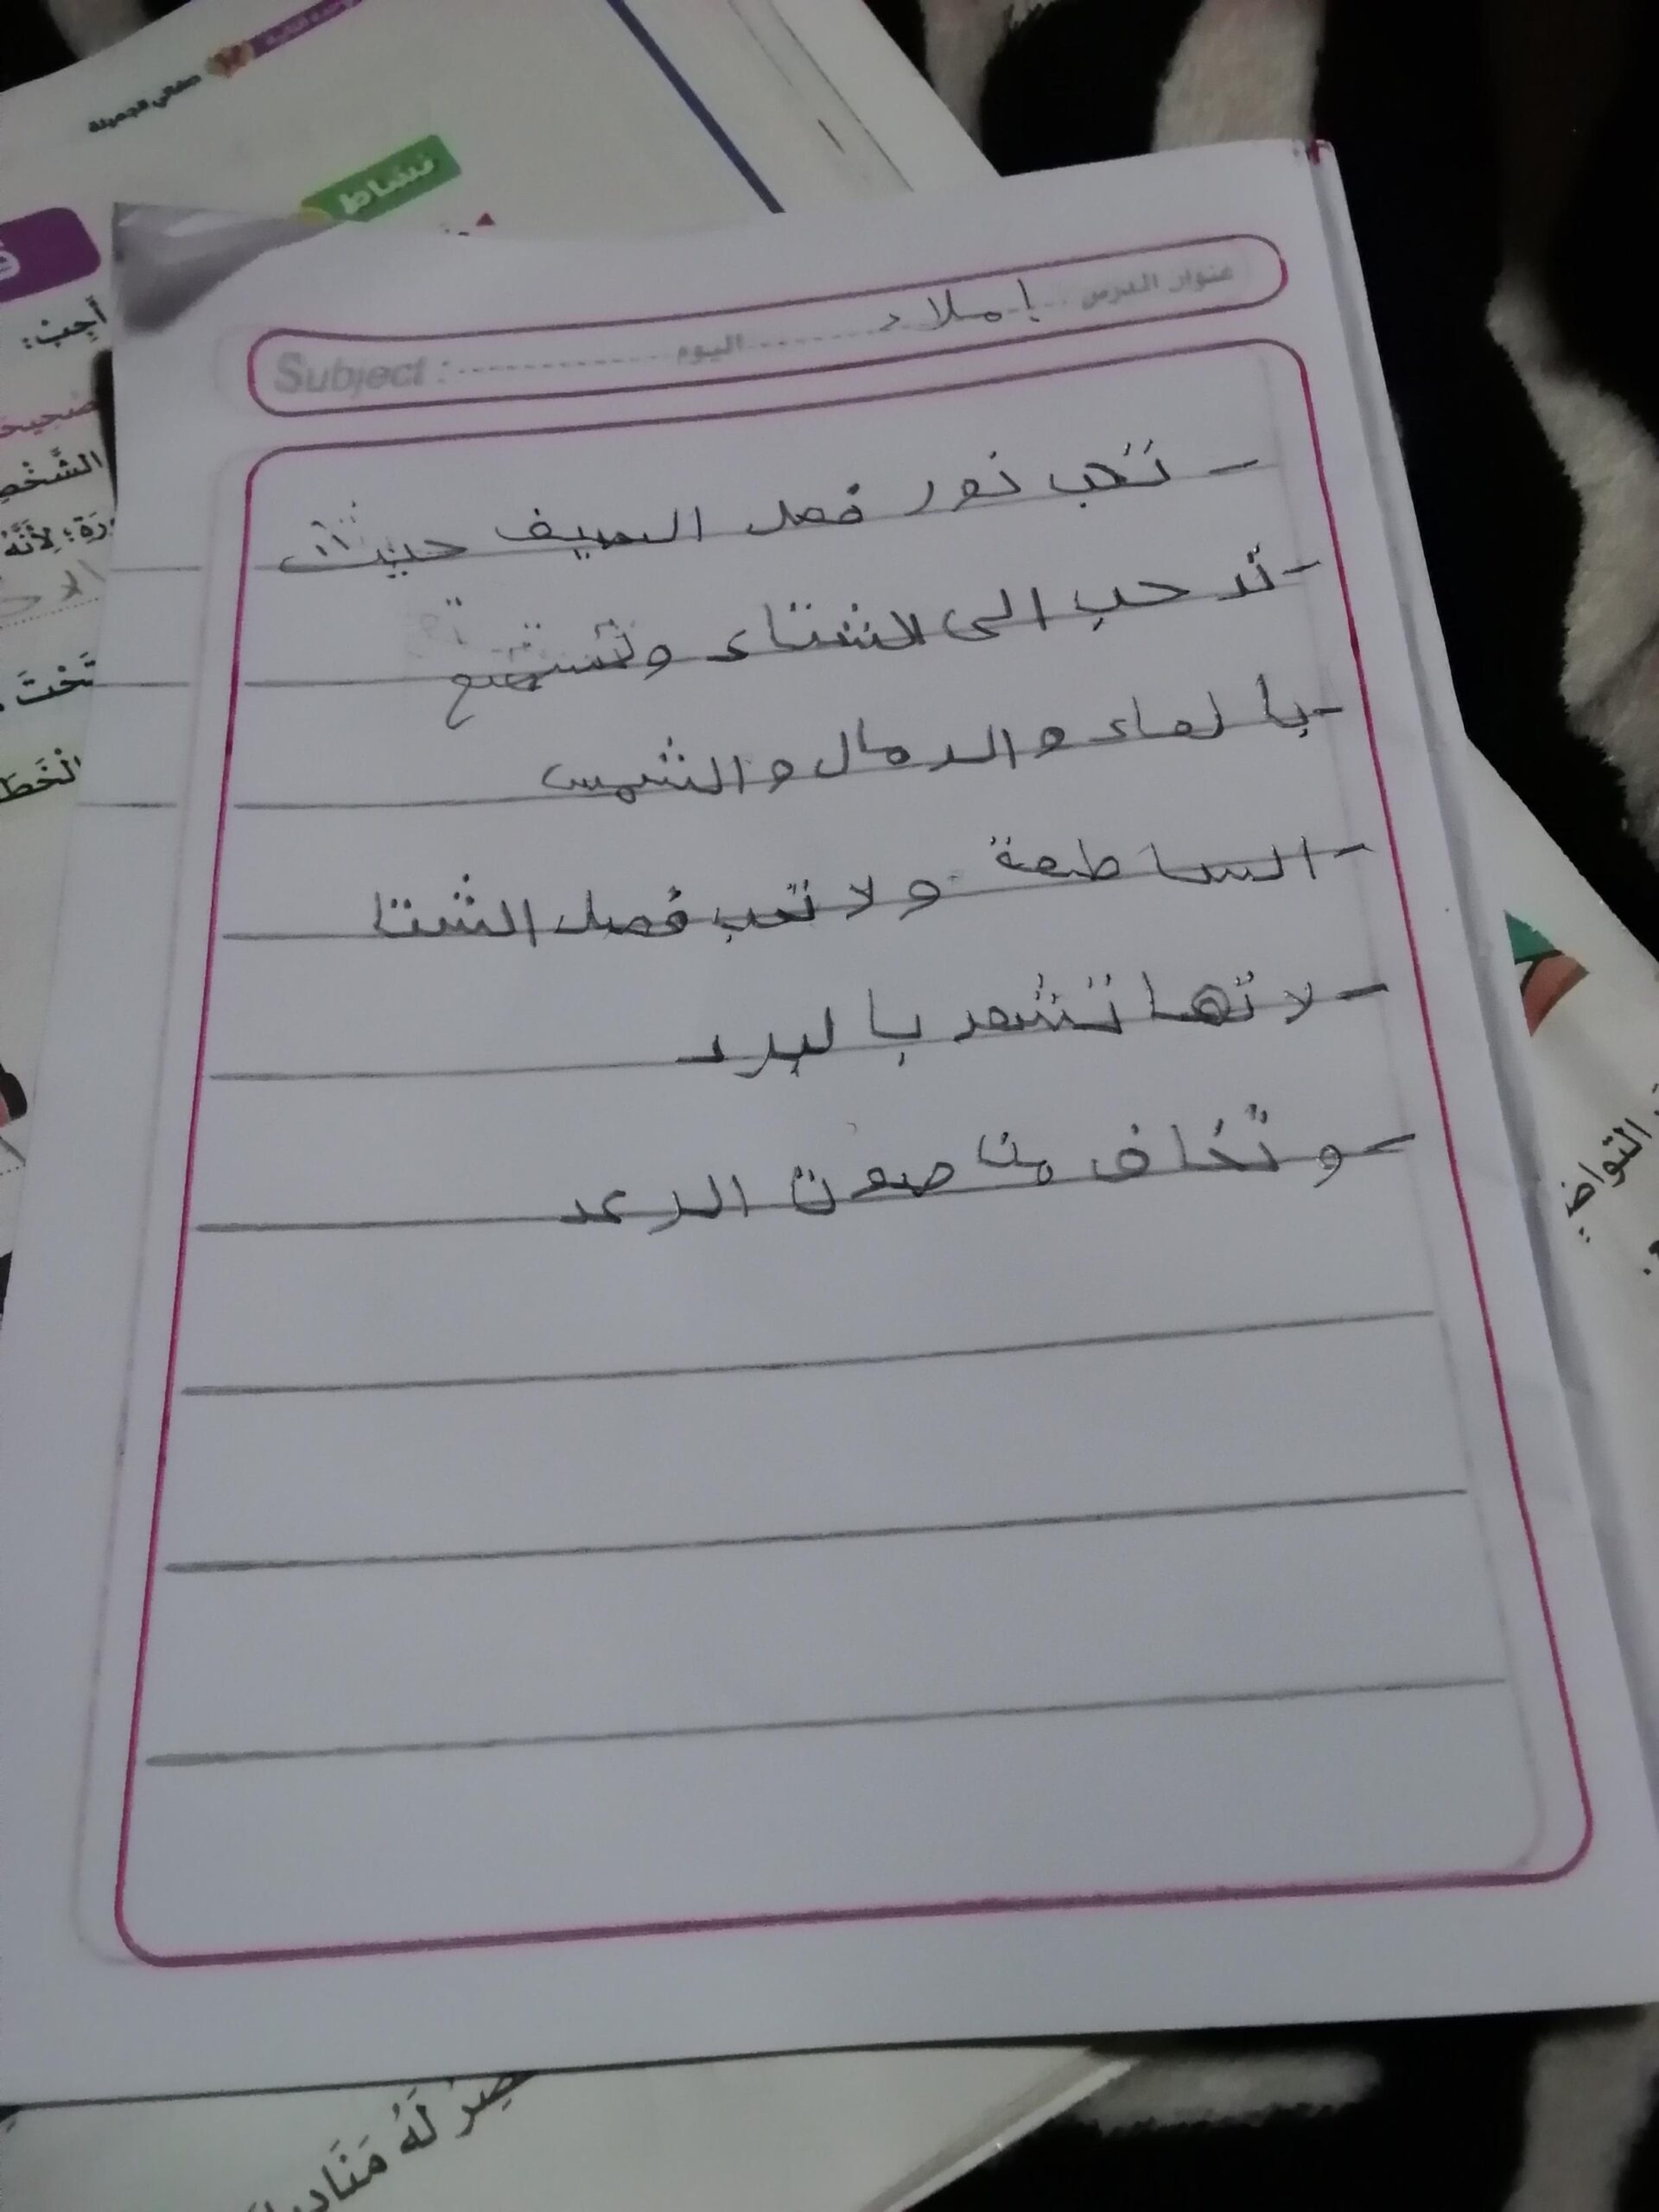 صفاتي الجميلة
نشاط
أَجِبْ:
الشَّخْصِ
تَحْتَ
عنوان الدرس إملاء
Subject : اليوم
- تحب نور فصل الصيف حيث
- تد حب الى لاشتاء وتستمتع
- با لماء و الرمال و الشمس
- السا طعة و لا تحب فصل الشتا
- لا تها تشعر با لبرد
- و تخاف من صوت الرعد
التواضع